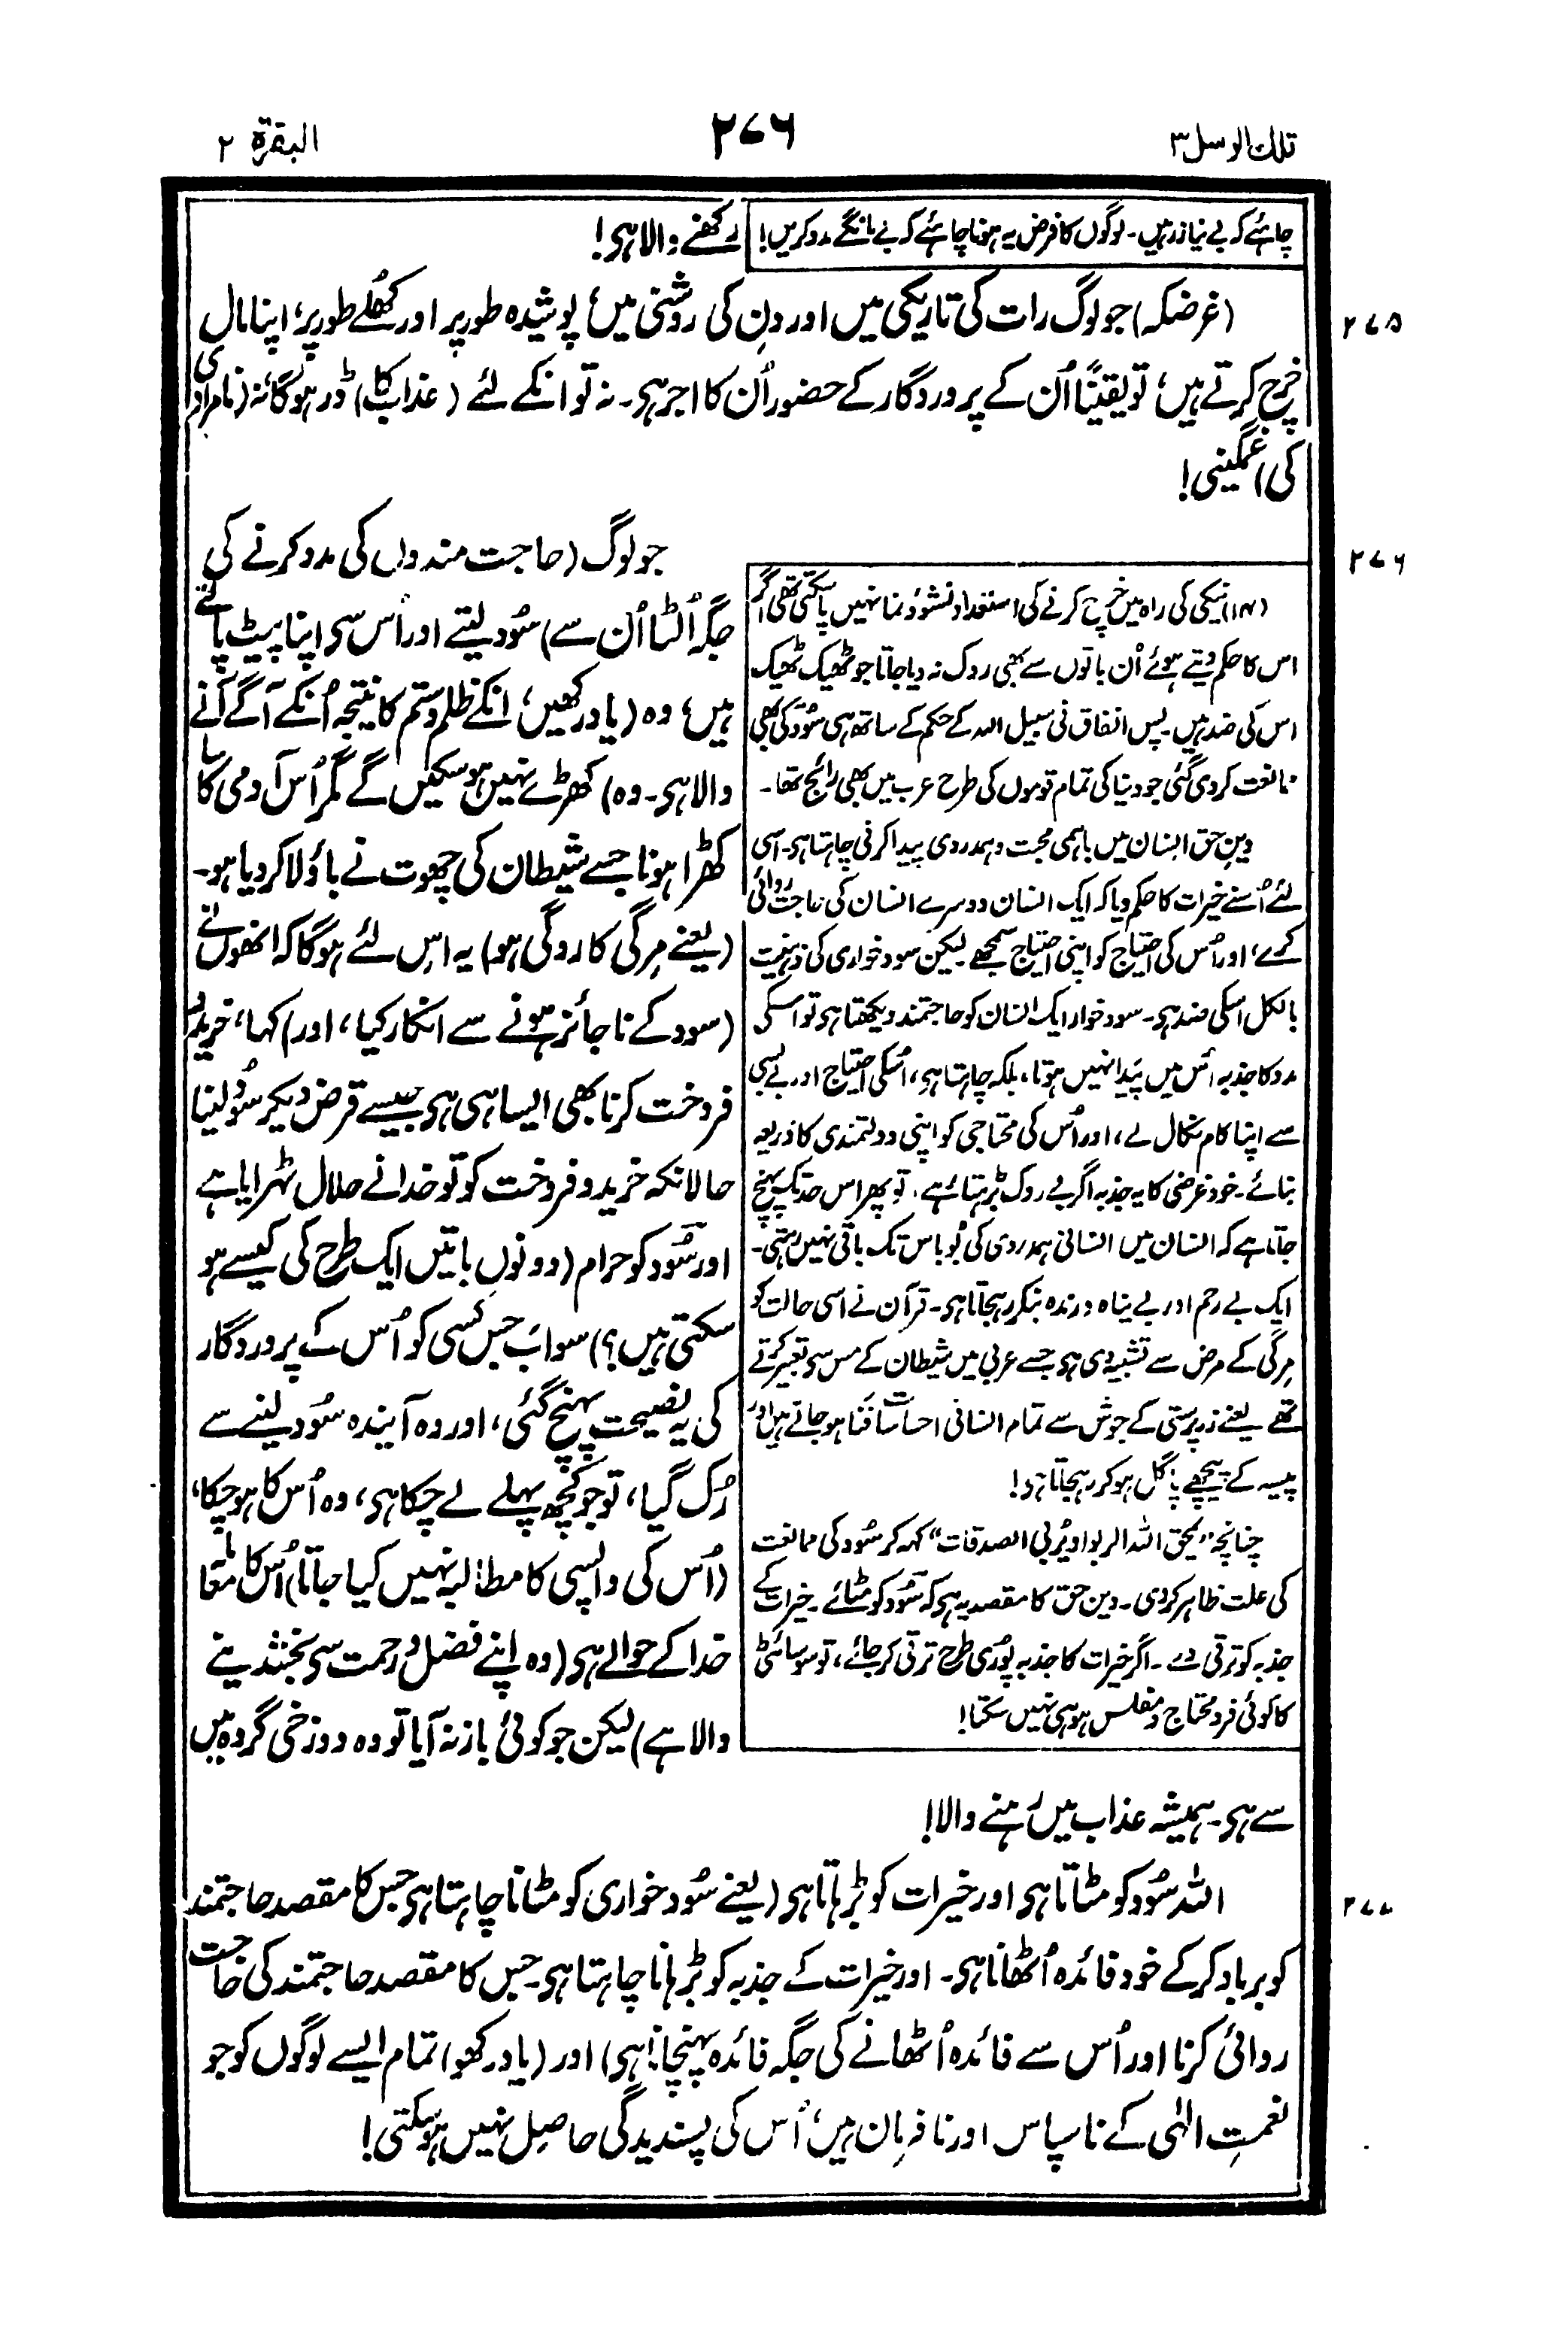 تلک الرسل ۳
۲۷۶
البقرة ۲
چاہئے کہ بے نیاز رہیں۔ لوگوں کا فرض یہ ہونا چاہئے کہ بے مانگے مدد کریں!
رکھنے والا ہی!
۲۷۵
(غرضکہ) جو لوگ رات کی تاریکی میں اور دن کی روشنی میں، پوشیدہ طور پر اور کھُلے طور پر، اپنا مال
خرچ کرتے ہیں، تو یقینًا اُن کے پروردگار کے حضور اُن کا اجر ہی۔ نہ تو انکے لئے (عذاب کا) ڈر ہوگا نہ (نامرادی
کی) غمگینی!
۲۷۶
جو لوگ (حاجت مندوں کی مدد کرنے کی
جگہ اُلٹا اُن سے) سُود لیتے اور اُس سی اپنا پیٹ پالتے
ہیں، وہ (یاد رکھیں، انکے ظلم و ستم کا نتیجہ اُنکے آگے آنے
والا ہی۔ وہ) کھڑے نہیں ہوسکیں گے مگر اُس آدمی کا سا
کھڑا ہونا جسے شیطان کی چھوت نے باؤلا کر دیا ہو۔
(یعنے مِرگی کا روگی ہو) یہ اِس لئے ہوگا کہ انھوں نے
(سود کے ناجائز ہونے سے انکار کیا، اور) کہا، خرید و
فروخت کرنا بھی ایسا ہی ہی جیسے قرض دیکر سُود لینا
حالانکہ خرید و فروخت کو تو خدا نے حلال ٹہرایا ہے
اور سُود کو حرام (دونوں باتیں ایک طرح کی کیسے ہو
سکتی ہیں؟) سو اب جس کسی کو اُس کے پروردگار
کی یہ نصیحت پہنچ گئی، اور وہ آیندہ سُود لینے سے
رُک گیا، تو جو کچھ پہلے لے چکا ہی، وہ اُس کا ہوچکا،
(اُس کی واپسی کا مطالبہ نہیں کیا جاتا) اُس کا معاملہ
خدا کے حوالے ہی (وہ اپنے فضل و رحمت سی بخشدینے
والا ہے) لیکن جو کوئی باز نہ آیا تو وہ دوزخی گروہ میں
سے ہی۔ ہمیشہ عذاب میں رہنے والا!
(۱۴) نیکی کی راہ میں خرچ کرنے کی استعداد نشوونما نہیں پاسکتی تھی اگر
اس کا حکم دیتے ہوئے اُن باتوں سے بھی روک نہ دیا جاتا جو ٹھیک ٹھیک
اس کی ضد ہیں۔ پس انفاق فی سبیل اللہ کے حکم کے ساتھ ہی سُود کی بھی
ممانعت کردی گئی جو دنیا کی تمام قوموں کی طرح عرب میں بھی رائج تھا۔
دینِ حق انسان میں باہمی محبت و ہمدردی پیدا کرنی چاہتا ہی۔ اسی
لئے اُسنے خیرات کا حکم دیا کہ ایک انسان دوسرے انسان کی حاجت روائی
کرے، اور اُس کی احتیاج کو اپنی احتیاج سمجھے۔ لیکن سود خواری کی ذہنیت
بالکل اسکی ضد ہی۔ سود خوار ایک انسان کو حاجتمند دیکھتا ہی تو اسکی
مدد کا جذبہ اُس میں پیدا نہیں ہوتا، بلکہ چاہتا ہی، اُسکی احتیاج اور بے بسی
سے اپنا کام نکال لے، اور اُس کی محتاجی کو اپنی دولتمندی کا ذریعہ
بنائے۔ خود غرضی کا یہ جذبہ اگر بے روک بڑہتا ہے، تو پھر اس حد تک پہنچ
جاتا ہے کہ انسان میں انسانی ہمدردی کی بُو باس تک باقی نہیں رہتی۔
ایک بے رحم اور بے پناہ درندہ بنکر رہجاتا ہی۔ قرآن نے اسی حالت کو
مِرگی کے مرض سے تشبیہ دی ہی جسے عربی میں شیطان کے مس سی تعبیر کرتے
تھے یعنے زر پرستی کے جوش سے تمام انسانی احساسات فنا ہوجاتے ہیں اور
پیسہ کے پیچھے پاگل ہوکر رہجاتا ہی!
چنانچہ "یمحق اللہ الربوا ویُربی الصدقات" کہہ کر سُود کی ممانعت
کی علت ظاہر کردی۔ دین حق کا مقصد یہ ہی کہ سُود کو مٹائے۔ خیرات کے
جذبہ کو ترقی دے۔ اگر خیرات کا جذبہ پوُری طرح ترقی کر جائے، تو سوسائٹی
کا کوئی فرد محتاج و مفلس ہو ہی نہیں سکتا!
۲۷۷
اللہ سُود کو مٹاتا ہی اور خیرات کو بڑہاتا ہی (یعنے سُود خواری کو مٹانا چاہتا ہی جس کا مقصد حاجتمند
کو برباد کرکے خود فائدہ اُٹھانا ہی۔ اور خیرات کے جذبہ کو بڑہانا چاہتا ہی۔ جس کا مقصد حاجتمند کی حاجت
روائی کرنا اور اُس سے فائدہ اُٹھانے کی جگہ فائدہ پہنچانا ہی) اور (یاد رکھو) تمام ایسے لوگوں کو جو
نعمتِ الٰہی کے ناسپاس اور نافرمان ہیں، اُس کی پسندیدگی حاصل نہیں ہوسکتی!